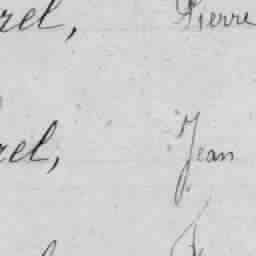 rel, Pierre
rel, Jean